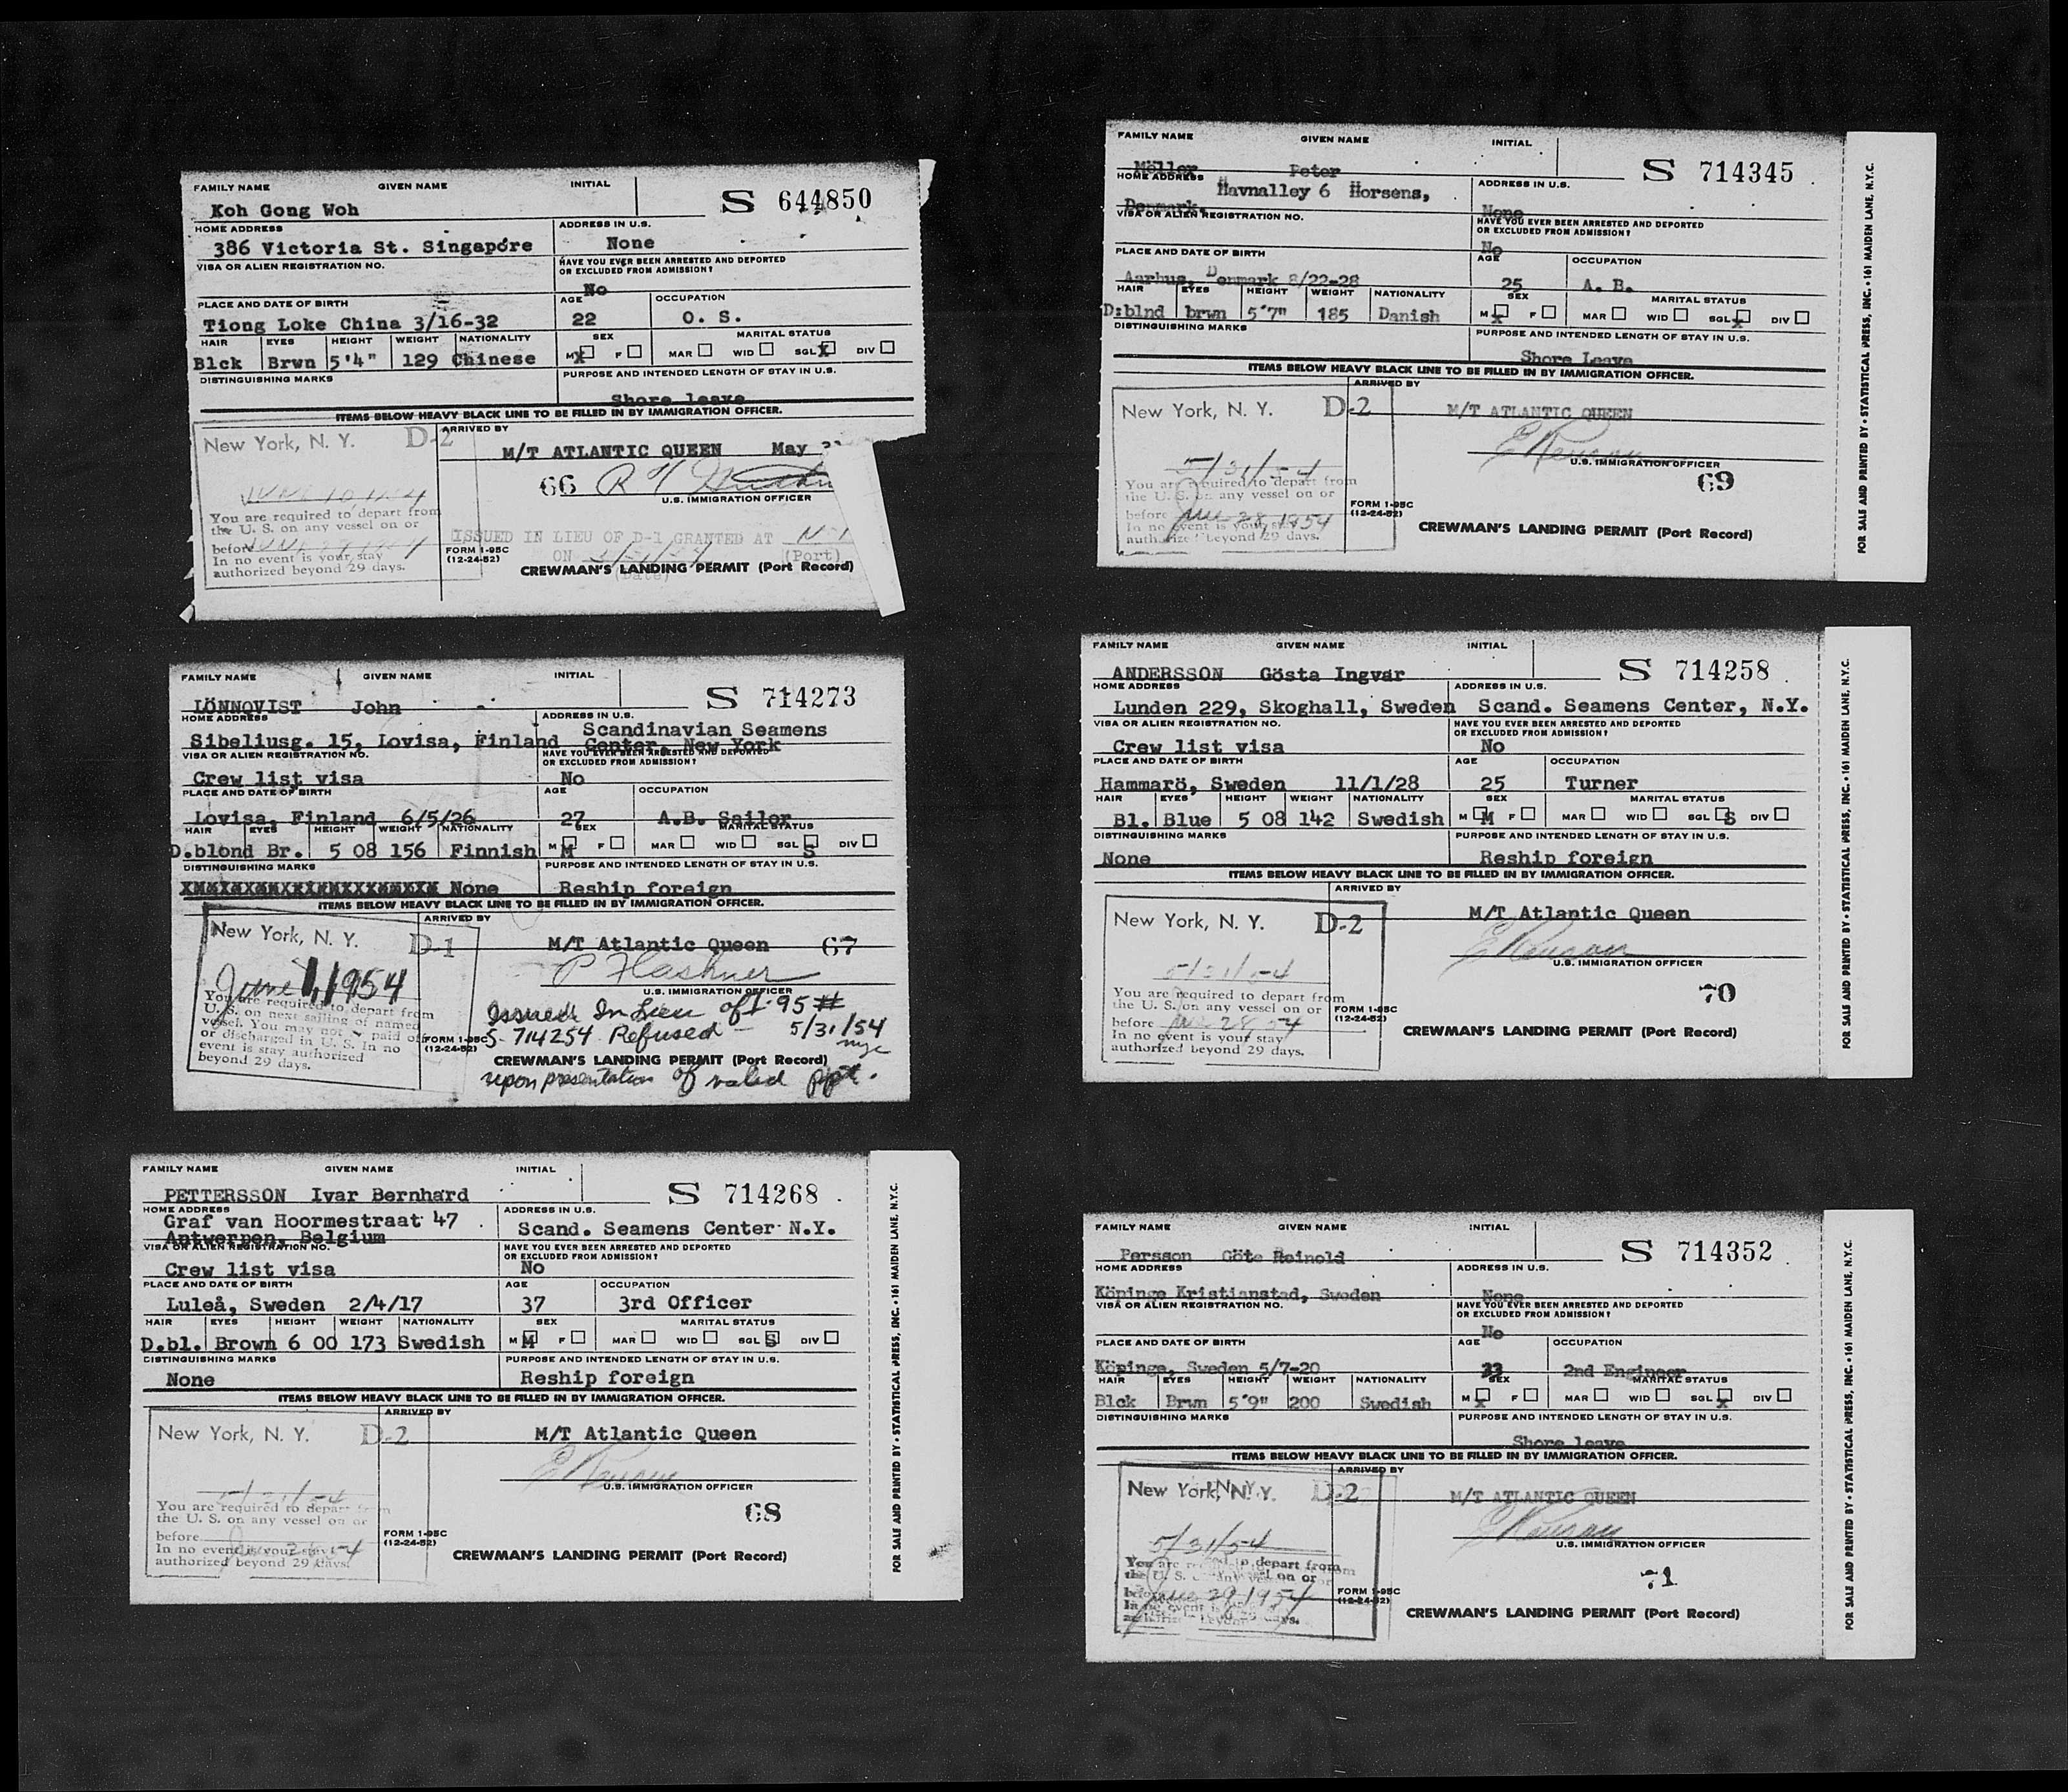 FAMILY NAME GIVEN NAME INITIAL
S 644850
Koh Gong Woh
HOME ADDRESS ADDRESS IN U.S.
386 Victoria St. Singapore None
VISA OR ALIEN REGISTRATION NO. HAVE YOU EVER BEEN ARRESTED AND DEPORTED
OR EXCLUDED FROM ADMISSION?
No
PLACE AND DATE OF BIRTH AGE OCCUPATION
Tiong Loke China 3/16-32 22 O. S.
HAIR EYES HEIGHT WEIGHT NATIONALITY SEX MARITAL STATUS
Blck Brwn 5'4" 129 Chinese M X F MAR WID SGL X DIV
DISTINGUISHING MARKS PURPOSE AND INTENDED LENGTH OF STAY IN U.S.
Shore leave
ITEMS BELOW HEAVY BLACK LINE TO BE FILLED IN BY IMMIGRATION OFFICER.
New York, N. Y. D-2 ARRIVED BY
M/T ATLANTIC QUEEN May
66
U.S. IMMIGRATION OFFICER
You are required to depart from
the U. S. on any vessel on or
before
In no event is your stay
authorized beyond 29 days.
ISSUED IN LIEU OF D-1 GRANTED AT
ON (Port)
(Date)
FORM 1-95C
(12-24-52)
CREWMAN'S LANDING PERMIT (Port Record)
FAMILY NAME GIVEN NAME INITIAL
S 714273
LÖNNQVIST John
HOME ADDRESS ADDRESS IN U.S.
Sibeliusg. 15, Lovisa, Finland Scandinavian Seamens
Center, New York
VISA OR ALIEN REGISTRATION NO. HAVE YOU EVER BEEN ARRESTED AND DEPORTED
OR EXCLUDED FROM ADMISSION?
Crew list visa No
PLACE AND DATE OF BIRTH AGE OCCUPATION
Lovisa, Finland 6/5/26 27 A.B. Sailor
HAIR EYES HEIGHT WEIGHT NATIONALITY SEX MARITAL STATUS
D.blond Br. 5 08 156 Finnish M M F MAR WID SGL S DIV
DISTINGUISHING MARKS PURPOSE AND INTENDED LENGTH OF STAY IN U.S.
None Reship foreign
ITEMS BELOW HEAVY BLACK LINE TO BE FILLED IN BY IMMIGRATION OFFICER.
New York, N. Y. D-1 ARRIVED BY
M/T Atlantic Queen 67
P Flashner
U.S. IMMIGRATION OFFICER
June 1, 1954
You are required to depart from
U. S. on next sailing of named
vessel. You may not paid off
or discharged in U. S. In no
event is stay authorized
beyond 29 days.
Issued In Lieu of I-95 #
S-714254 Refused - 5/31/54
nyc
FORM 1-95C
(12-24-52)
CREWMAN'S LANDING PERMIT (Port Record)
upon presentation of valid ppt.
FAMILY NAME GIVEN NAME INITIAL
S 714268
PETTERSSON Ivar Bernhard
HOME ADDRESS ADDRESS IN U.S.
Graf van Hoormestraat 47 Scand. Seamens Center N.Y.
Antwerpen, Belgium
VISA OR ALIEN REGISTRATION NO. HAVE YOU EVER BEEN ARRESTED AND DEPORTED
OR EXCLUDED FROM ADMISSION?
Crew list visa No
PLACE AND DATE OF BIRTH AGE OCCUPATION
Luleå, Sweden 2/4/17 37 3rd Officer
HAIR EYES HEIGHT WEIGHT NATIONALITY SEX MARITAL STATUS
D.bl. Brown 6 00 173 Swedish M M F MAR WID SGL S DIV
DISTINGUISHING MARKS PURPOSE AND INTENDED LENGTH OF STAY IN U.S.
None Reship foreign
ITEMS BELOW HEAVY BLACK LINE TO BE FILLED IN BY IMMIGRATION OFFICER.
New York, N. Y. D-2 ARRIVED BY
M/T Atlantic Queen
U.S. IMMIGRATION OFFICER
5/31/54
You are required to depart from
the U. S. on any vessel on or
before
In no event is your stay
authorized beyond 29 days.
68
FORM 1-95C
(12-24-52)
CREWMAN'S LANDING PERMIT (Port Record)
FOR SALE AND PRINTED BY • STATISTICAL PRESS, INC. • 161 MAIDEN LANE, N.Y.C.
FAMILY NAME GIVEN NAME INITIAL
S 714345
Möller Peter
HOME ADDRESS ADDRESS IN U.S.
Havnalley 6 Horsens,
Denmark. None
VISA OR ALIEN REGISTRATION NO. HAVE YOU EVER BEEN ARRESTED AND DEPORTED
OR EXCLUDED FROM ADMISSION?
No
PLACE AND DATE OF BIRTH AGE OCCUPATION
Aarhus, Denmark 8/22-28 25 A. B.
HAIR EYES HEIGHT WEIGHT NATIONALITY SEX MARITAL STATUS
D:blnd brwn 5'7" 185 Danish M X F MAR WID SGL X DIV
DISTINGUISHING MARKS PURPOSE AND INTENDED LENGTH OF STAY IN U.S.
Shore Leave
ITEMS BELOW HEAVY BLACK LINE TO BE FILLED IN BY IMMIGRATION OFFICER.
New York, N. Y. D-2 ARRIVED BY
M/T ATLANTIC QUEEN
U.S. IMMIGRATION OFFICER
5/31/54
69
You are required to depart from
the U. S. on any vessel on or
before June 28, 1954
In no event is your stay
authorized beyond 29 days.
FORM 1-95C
(12-24-52)
CREWMAN'S LANDING PERMIT (Port Record)
FOR SALE AND PRINTED BY • STATISTICAL PRESS, INC. • 161 MAIDEN LANE, N.Y.C.
FAMILY NAME GIVEN NAME INITIAL
S 714258
ANDERSSON Gösta Ingvar
HOME ADDRESS ADDRESS IN U.S.
Lunden 229, Skoghall, Sweden Scand. Seamens Center, N.Y.
VISA OR ALIEN REGISTRATION NO. HAVE YOU EVER BEEN ARRESTED AND DEPORTED
OR EXCLUDED FROM ADMISSION?
Crew list visa No
PLACE AND DATE OF BIRTH AGE OCCUPATION
Hammarö, Sweden 11/1/28 25 Turner
HAIR EYES HEIGHT WEIGHT NATIONALITY SEX MARITAL STATUS
Bl. Blue 5 08 142 Swedish M M F MAR WID SGL S DIV
DISTINGUISHING MARKS PURPOSE AND INTENDED LENGTH OF STAY IN U.S.
None Reship foreign
ITEMS BELOW HEAVY BLACK LINE TO BE FILLED IN BY IMMIGRATION OFFICER.
New York, N. Y. D-2 ARRIVED BY
M/T Atlantic Queen
U.S. IMMIGRATION OFFICER
5/31/54
70
You are required to depart from
the U. S. on any vessel on or
before June 28, 54
In no event is your stay
authorized beyond 29 days.
FORM 1-95C
(12-24-52)
CREWMAN'S LANDING PERMIT (Port Record)
FOR SALE AND PRINTED BY • STATISTICAL PRESS, INC. • 161 MAIDEN LANE, N.Y.C.
FAMILY NAME GIVEN NAME INITIAL
S 714352
Persson Göte Reinold
HOME ADDRESS ADDRESS IN U.S.
Köpinge Kristianstad, Sweden None
VISA OR ALIEN REGISTRATION NO. HAVE YOU EVER BEEN ARRESTED AND DEPORTED
OR EXCLUDED FROM ADMISSION?
No
PLACE AND DATE OF BIRTH AGE OCCUPATION
Köpinge, Sweden 5/7-20 33 2nd Engineer
HAIR EYES HEIGHT WEIGHT NATIONALITY SEX MARITAL STATUS
Blck Brwn 5'9" 200 Swedish M X F MAR WID SGL X DIV
DISTINGUISHING MARKS PURPOSE AND INTENDED LENGTH OF STAY IN U.S.
Shore leave
ITEMS BELOW HEAVY BLACK LINE TO BE FILLED IN BY IMMIGRATION OFFICER.
New York, N. Y. D-2 ARRIVED BY
M/T ATLANTIC QUEEN
U.S. IMMIGRATION OFFICER
5/31/54
71
You are required to depart from
the U. S. on any vessel on or
before June 29 1954
In no event is
authorized beyond 29 days.
FORM 1-95C
(12-24-52)
CREWMAN'S LANDING PERMIT (Port Record)
FOR SALE AND PRINTED BY • STATISTICAL PRESS, INC. • 161 MAIDEN LANE, N.Y.C.